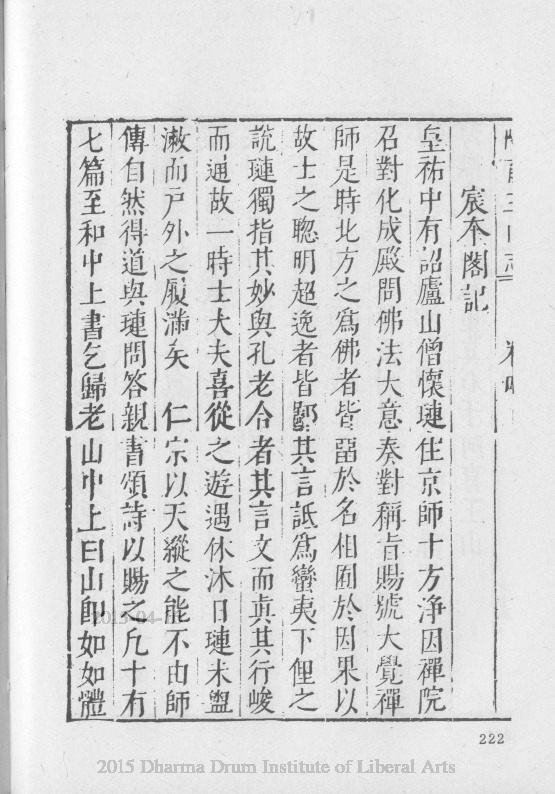 宸奎閣記
皇祐中有詔廬山僧懷璉住京師十方淨因禪院
召對化成殿問佛法大意奏對稱旨賜號大覺禪
師是時北方之為佛者皆畱於名相囿於因果以
故士之聰明超逸者皆鄙其言詆為蠻夷下俚之
說璉獨指其妙與孔老合者其言文而眞其行峻
而通故一時士大夫喜從之遊遇休沐日璉未盥
漱而戶外之屨滿矣 仁宗以天縱之能不由師
傳自然得道與璉問答親書頌詩以賜之凡十有
七篇至和中上書乞歸老山中上曰山即如如體
222
2015 Dharma Drum Institute of Liberal Arts